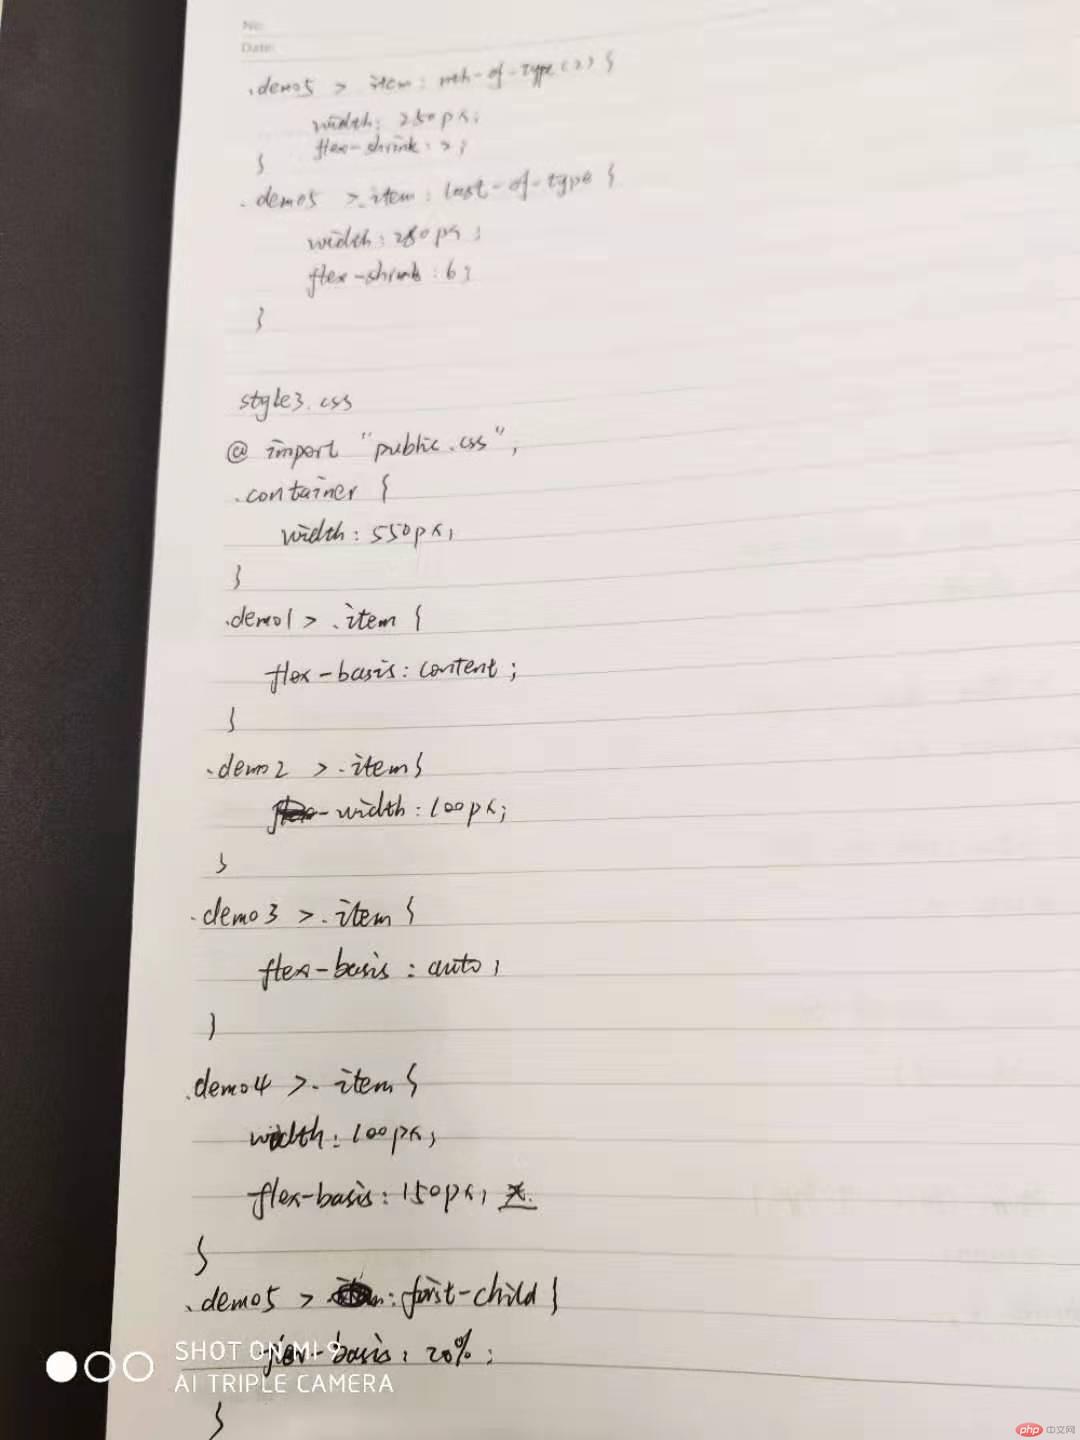 No:
Date:
.demo5 > .item: nth-of-type(2) {
width: 250px;
flex-shrink: 2;
}
.demo5 >.item: last-of-type {
width: 280px;
flex-shrink: 6;
}
style3.css
@ import "public.css";
.container {
width: 550px;
}
.demo1 > .item {
flex-basis: content;
}
.demo2 > .item {
width: 100px;
}
.demo3 > .item {
flex-basis: auto;
}
.demo4 > . item {
width: 100px;
flex-basis: 150px;
}
.demo5 > :first-child {
flex-basis: 20%;
}
SHOT ON MI 9
AI TRIPLE CAMERA
php 中文网